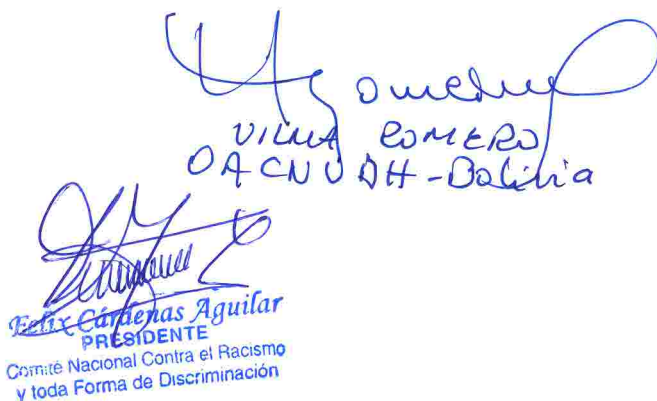 VILMA ROMERO
OACNUDH-Bolivia
Felix Cárdenas Aguilar
PRESIDENTE
Comité Nacional Contra el Racismo
y toda Forma de Discriminación